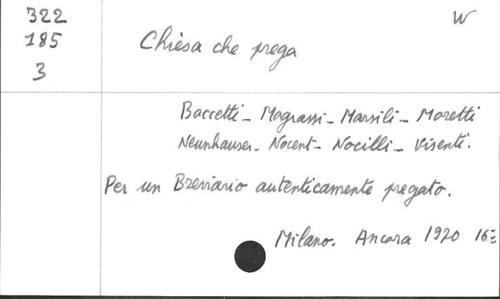 322
185
3
W
Chièsa che prega
Baccetti - Magrassi - Marsili - Moretti
Neunhauser - Nocent - Nocilli - Visenti.
Per un Breviario autenticamente pregato.
Milano. Ancora 1970 16=